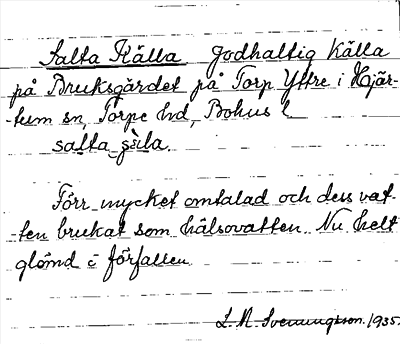 Salta Källa Jodhaltig Källa
på Bruksgärdet på Torp Yttre i Hjär-
-tum sn, Torpe hd, Bohus l
salta
Förr mycket omtalad och dess vat-
-ten brukat som hälsovatten. Nu helt
glömd o förfallen
L. M. Svenungsson. 1935.